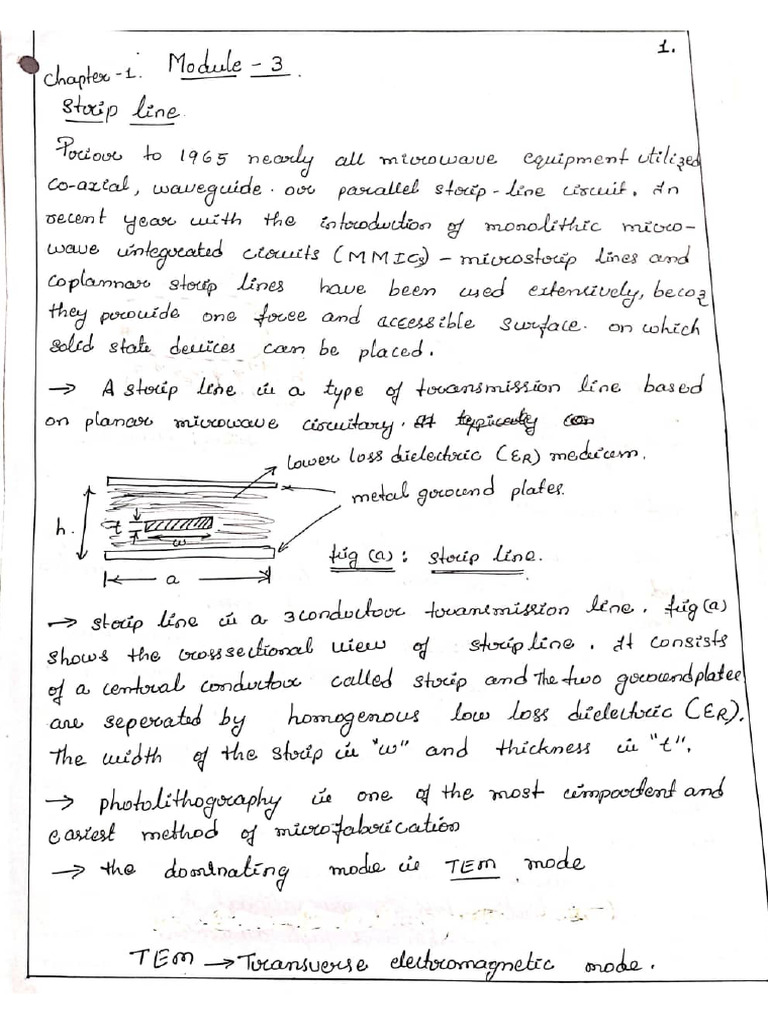 1.
Chapter-1. Module - 3.
Strip line.
Prior to 1965 nearly all microwave equipment utilized
co-axial, waveguide. or parallel strip-line circuit. In
recent year with the introduction of monolithic micro-
wave integrated circuits (MMICs) - microstrip lines and
coplannar strip lines have been used extentively, becoz
they provide one free and accessible surface. on which
solid state devices can be placed.
→ A strip line is a type of transmission line based
on planar microwave circuitary. It typically can
lower loss dielectric (ER) medium.
metal ground plates.
h.
t
w
a
fig (a): strip line.
→ strip line is a 3conductor transmission line. fig(a)
shows the crosssectional view of stripline. It consists
of a central conductor called strip and the two groundplates
are seperated by homogenous low loss dielectric (ER).
The width of the strip is "w" and thickness is "t".
→ photolithography is one of the most important and
easiest method of microfabrication
→ the dominating mode is TEM mode
TEM → Transverse electromagnetic mode.